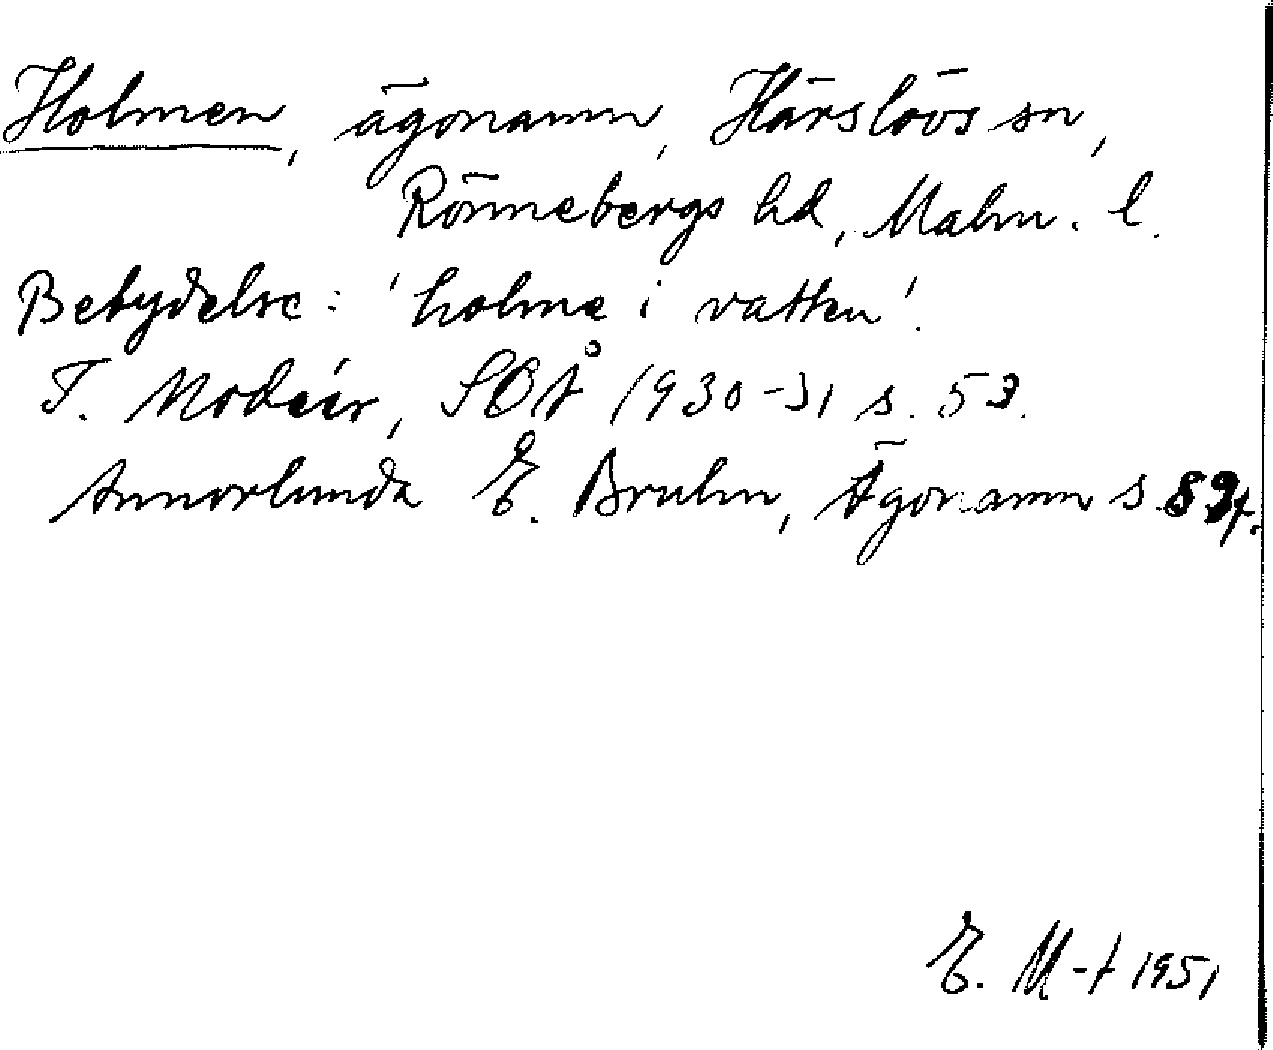 Holmen, ägonamn, Härslövs sn,
Rönnebergs hd, Malm. l.
Betydelse: 'holme i vatten'.
I. Modéer, SOÅ 1930-31 s. 53.
Annorlunda E. Bruhn, Ägonamn s 89f.
E. M-t 1951